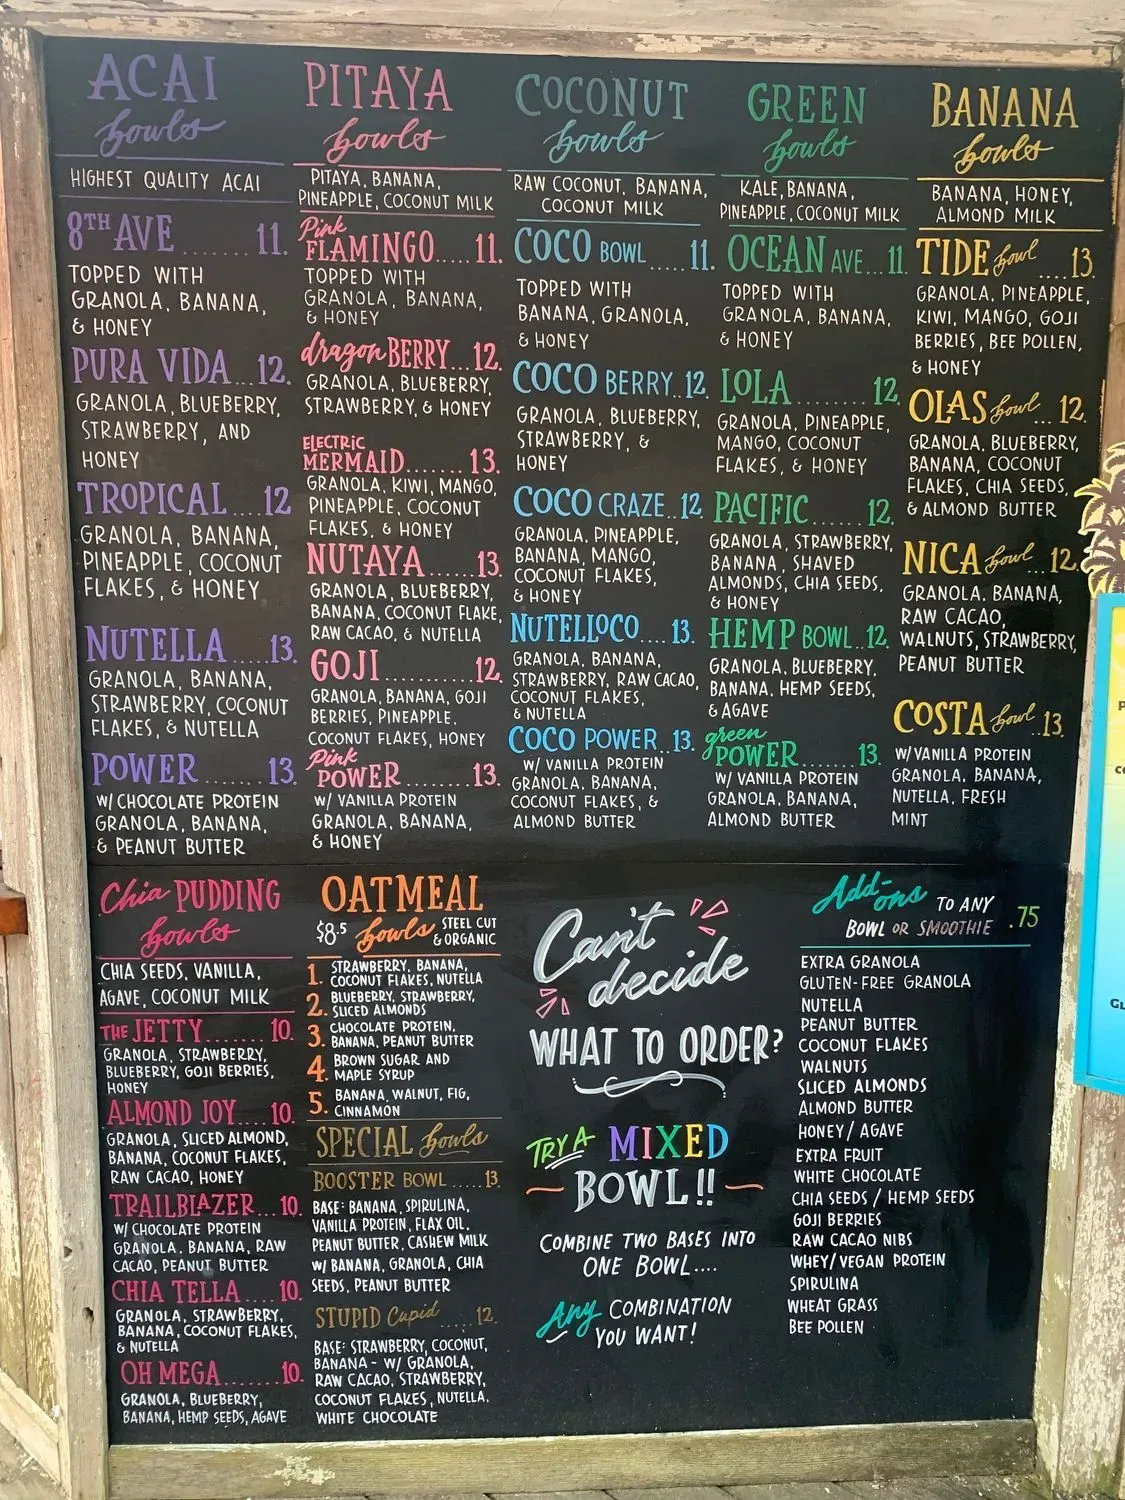 ACAI
bowls
HIGHEST QUALITY ACAI
8TH AVE ....... 11.
TOPPED WITH
GRANOLA, BANANA,
& HONEY
PURA VIDA ... 12.
GRANOLA, BLUEBERRY,
STRAWBERRY, AND
HONEY
TROPICAL .... 12
GRANOLA, BANANA,
PINEAPPLE, COCONUT
FLAKES, & HONEY
NUTELLA ..... 13.
GRANOLA, BANANA,
STRAWBERRY, COCONUT
FLAKES, & NUTELLA
POWER ....... 13.
W/ CHOCOLATE PROTEIN
GRANOLA, BANANA,
& PEANUT BUTTER
PITAYA
bowls
PITAYA, BANANA,
PINEAPPLE, COCONUT MILK
Pink
FLAMINGO ..... 11.
TOPPED WITH
GRANOLA, BANANA,
& HONEY
dragon BERRY... 12.
GRANOLA, BLUEBERRY,
STRAWBERRY, & HONEY
ELECTRIC
MERMAID ....... 13.
GRANOLA, KIWI, MANGO,
PINEAPPLE, COCONUT
FLAKES, & HONEY
NUTAYA ...... 13.
GRANOLA, BLUEBERRY,
BANANA, COCONUT FLAKE,
RAW CACAO, & NUTELLA
GOJI ........... 12.
GRANOLA, BANANA, GOJI
BERRIES, PINEAPPLE,
COCONUT FLAKES, HONEY
Pink
POWER ........ 13.
W/ VANILLA PROTEIN
GRANOLA, BANANA,
& HONEY
COCONUT
bowls
RAW COCONUT, BANANA,
COCONUT MILK
COCO BOWL ..... 11.
TOPPED WITH
BANANA, GRANOLA,
& HONEY
COCO BERRY .. 12.
GRANOLA, BLUEBERRY,
STRAWBERRY, &
HONEY
COCO CRAZE .. 12.
GRANOLA, PINEAPPLE,
BANANA, MANGO,
COCONUT FLAKES,
& HONEY
NUTELLOCO .... 13.
GRANOLA, BANANA,
STRAWBERRY, RAW CACAO,
COCONUT FLAKES,
& NUTELLA
COCO POWER .. 13.
W/ VANILLA PROTEIN
GRANOLA, BANANA,
COCONUT FLAKES, &
ALMOND BUTTER
GREEN
bowls
KALE, BANANA,
PINEAPPLE, COCONUT MILK
OCEAN AVE ... 11.
TOPPED WITH
GRANOLA, BANANA,
& HONEY
LOLA ......... 12.
GRANOLA, PINEAPPLE,
MANGO, COCONUT
FLAKES, & HONEY
PACIFIC ...... 12.
GRANOLA, STRAWBERRY,
BANANA, SHAVED
ALMONDS, CHIA SEEDS,
& HONEY
HEMP BOWL .. 12.
GRANOLA, BLUEBERRY,
BANANA, HEMP SEEDS,
& AGAVE
green
POWER ....... 13.
W/ VANILLA PROTEIN
GRANOLA, BANANA,
ALMOND BUTTER
BANANA
bowls
BANANA, HONEY,
ALMOND MILK
TIDE bowl .... 13.
GRANOLA, PINEAPPLE,
KIWI, MANGO, GOJI
BERRIES, BEE POLLEN,
& HONEY
OLAS bowl ... 12.
GRANOLA, BLUEBERRY,
BANANA, COCONUT
FLAKES, CHIA SEEDS,
& ALMOND BUTTER
NICA bowl ... 12.
GRANOLA, BANANA,
RAW CACAO,
WALNUTS, STRAWBERRY,
PEANUT BUTTER
COSTA bowl .. 13.
W/ VANILLA PROTEIN
GRANOLA, BANANA,
NUTELLA, FRESH
MINT
Chia PUDDING
bowls
CHIA SEEDS, VANILLA,
AGAVE, COCONUT MILK
THE JETTY ....... 10.
GRANOLA, STRAWBERRY,
BLUEBERRY, GOJI BERRIES,
HONEY
ALMOND JOY .... 10.
GRANOLA, SLICED ALMOND,
BANANA, COCONUT FLAKES,
RAW CACAO, HONEY
TRAILBLAZER ... 10.
W/ CHOCOLATE PROTEIN
GRANOLA, BANANA, RAW
CACAO, PEANUT BUTTER
CHIA TELLA .... 10.
GRANOLA, STRAWBERRY,
BANANA, COCONUT FLAKES,
& NUTELLA
OH MEGA ....... 10.
GRANOLA, BLUEBERRY,
BANANA, HEMP SEEDS, AGAVE
OATMEAL
$8.5 bowls STEEL CUT
& ORGANIC
1. STRAWBERRY, BANANA,
COCONUT FLAKES, NUTELLA
2. BLUEBERRY, STRAWBERRY,
SLICED ALMONDS
3. CHOCOLATE PROTEIN,
BANANA, PEANUT BUTTER
4. BROWN SUGAR AND
MAPLE SYRUP
5. BANANA, WALNUT, FIG,
CINNAMON
SPECIAL bowls
BOOSTER BOWL ..... 13.
BASE: BANANA, SPIRULINA,
VANILLA PROTEIN, FLAX OIL,
PEANUT BUTTER, CASHEW MILK
W/ BANANA, GRANOLA, CHIA
SEEDS, PEANUT BUTTER
STUPID Cupid ..... 12.
BASE: STRAWBERRY, COCONUT,
BANANA - W/ GRANOLA,
RAW CACAO, STRAWBERRY,
COCONUT FLAKES, NUTELLA,
WHITE CHOCOLATE
Can't
decide
WHAT TO ORDER?
TRY A MIXED
BOWL!!
COMBINE TWO BASES INTO
ONE BOWL....
Any COMBINATION
YOU WANT!
Add-ons TO ANY
BOWL OR SMOOTHIE .75
EXTRA GRANOLA
GLUTEN-FREE GRANOLA
NUTELLA
PEANUT BUTTER
COCONUT FLAKES
WALNUTS
SLICED ALMONDS
ALMOND BUTTER
HONEY / AGAVE
EXTRA FRUIT
WHITE CHOCOLATE
CHIA SEEDS / HEMP SEEDS
GOJI BERRIES
RAW CACAO NIBS
WHEY/VEGAN PROTEIN
SPIRULINA
WHEAT GRASS
BEE POLLEN